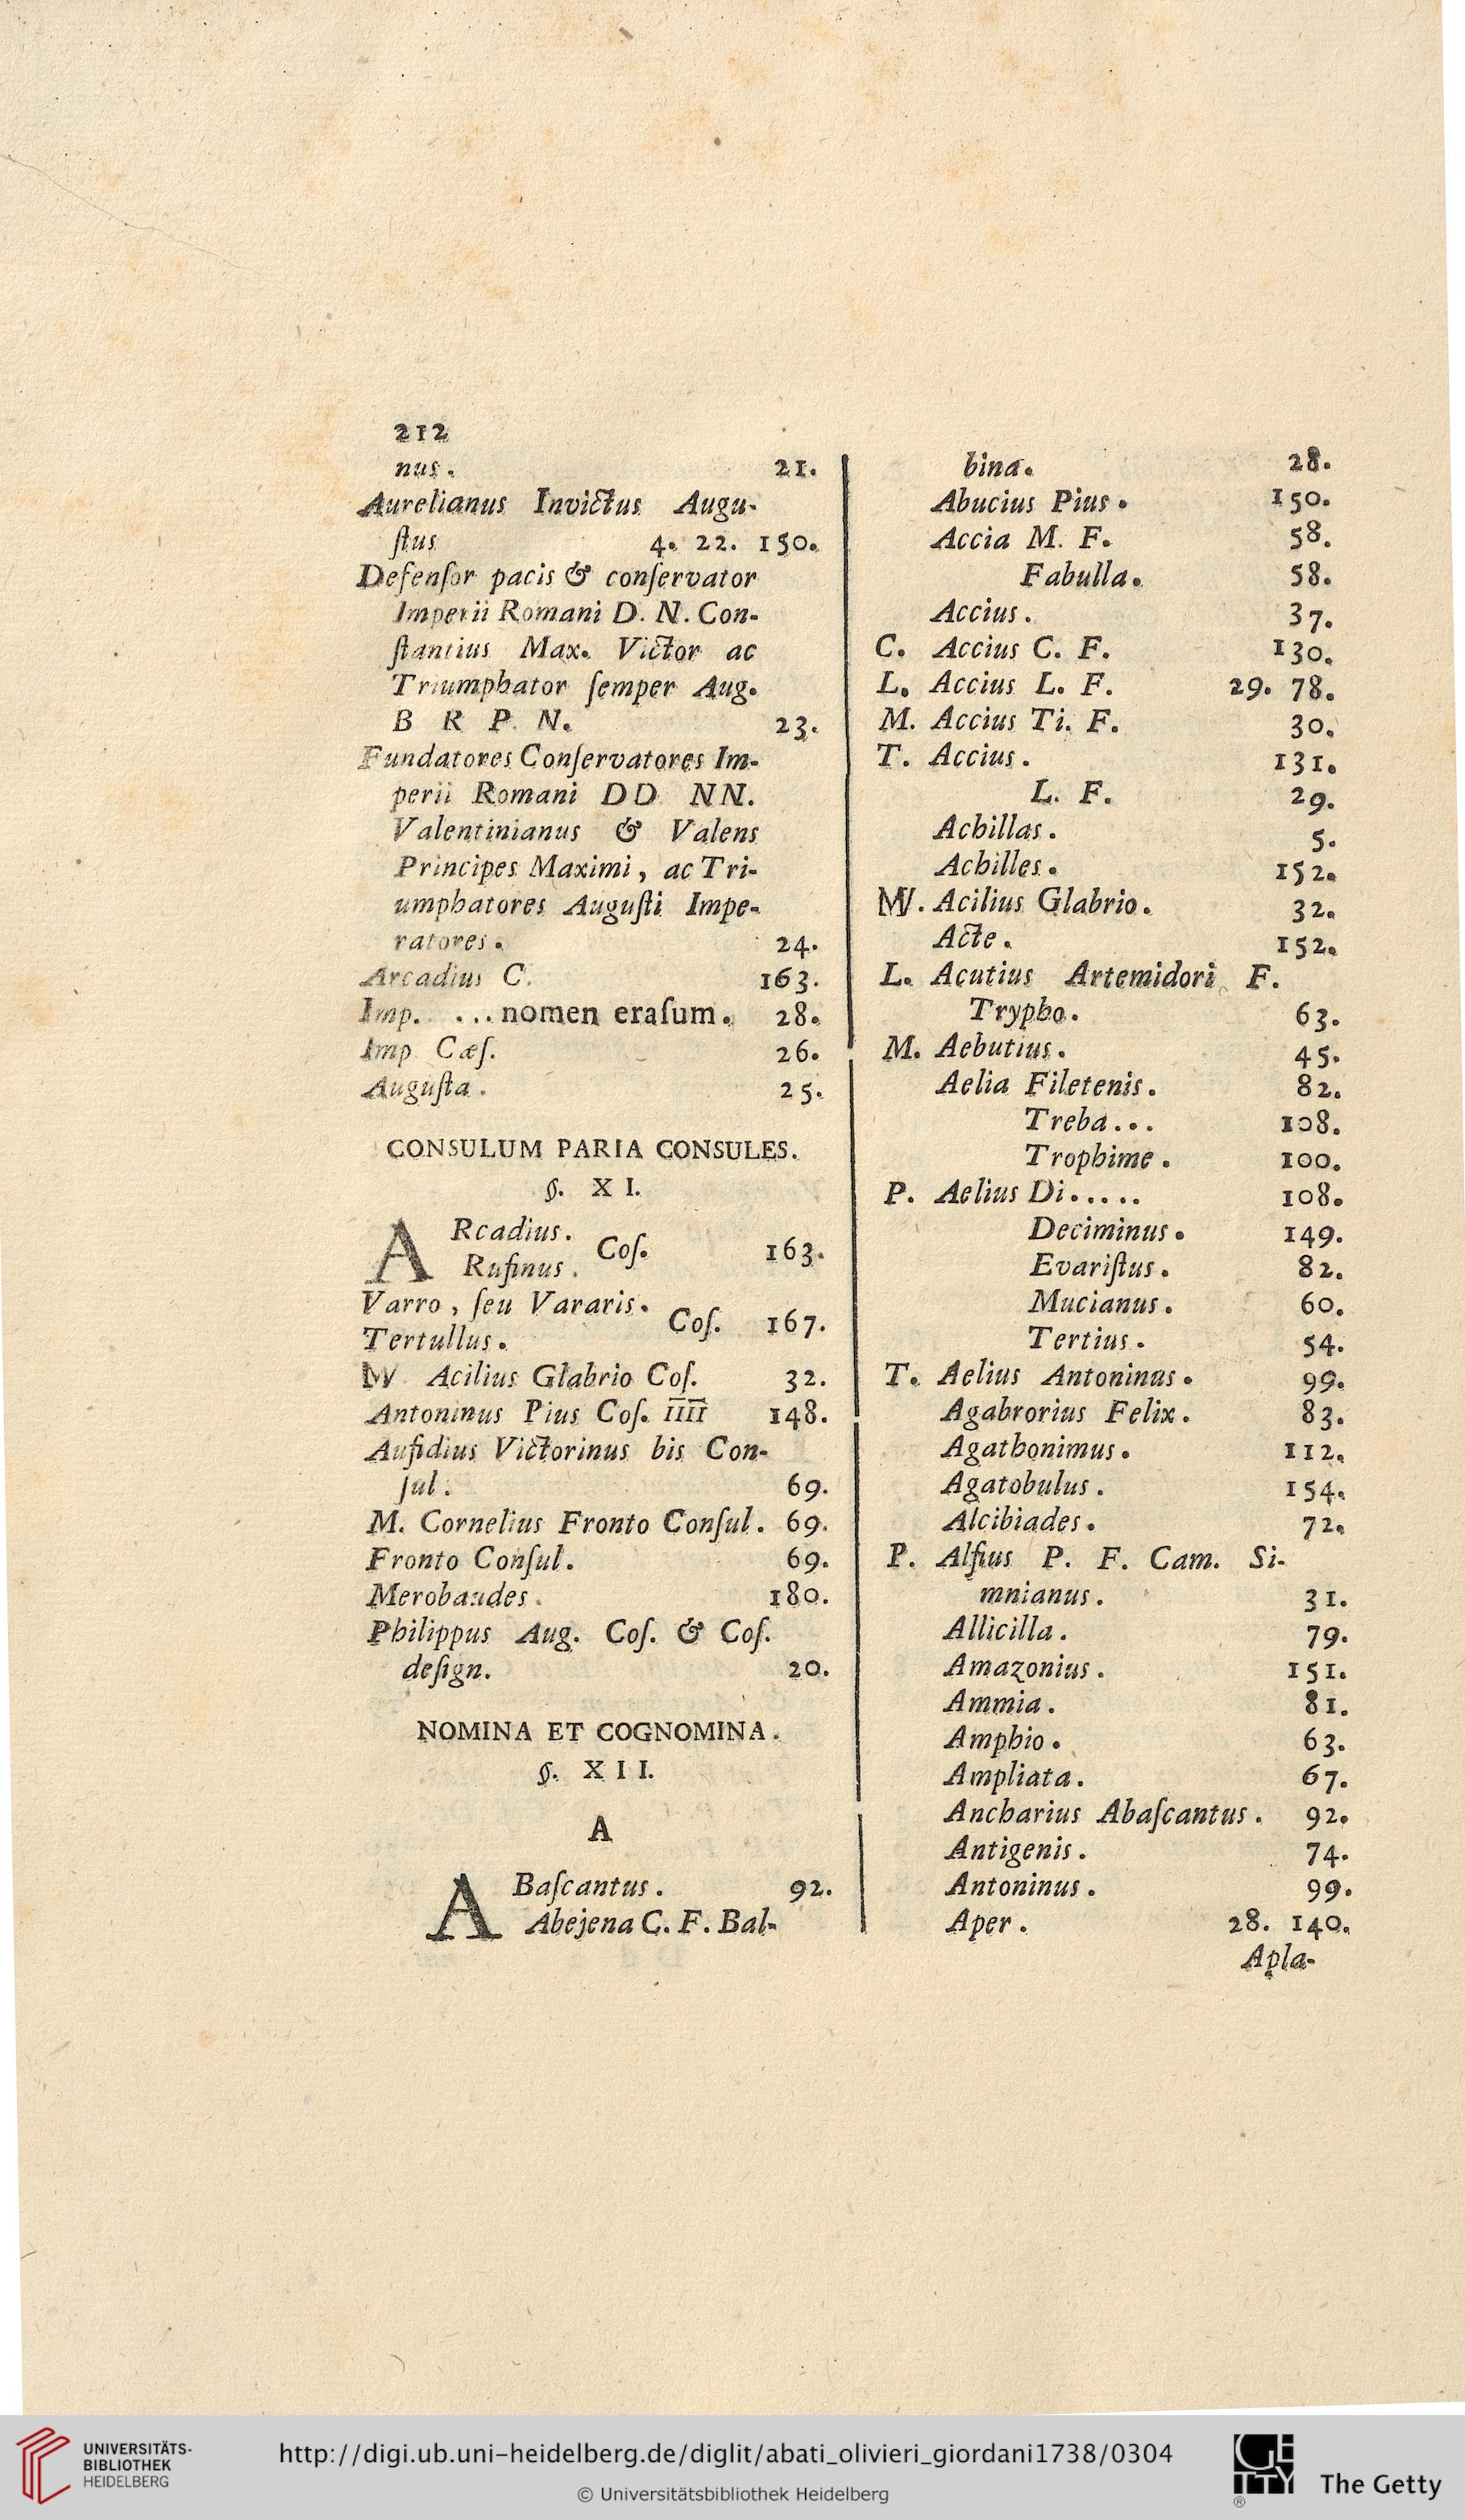 212
nus. 21.
Aurelianus Invictus Augu-
ſtus 4. 22. 150.
Defenſor pacis & conſervator
Imperii Romani D. N. Con-
ſtantius Max. Victor ac
Triumphator ſemper Aug.
B R P N. 23.
Fundatores Conſervatores Im-
perii Romani DD NN.
Valentinianus & Valens
Principes Maximi, ac Tri-
umphatores Auguſti Impe-
ratores. 24.
Arcadius C. 163.
Imp. ... nomen eraſum. 28.
Imp Cæſ. 26.
Auguſta. 25.
CONSULUM PARIA CONSULES.
§. X I.
ARcadius.
Rufinus. Coſ. 163.
Varro, ſeu Vararis.
Tertullus. Coſ. 167.
M Acilius Glabrio Coſ. 32.
Antoninus Pius Coſ. IIII 148.
Aufidius Victorinus bis Con-
ſul. 69.
M. Cornelius Fronto Conſul. 69.
Fronto Conſul. 69.
Merobaudes. 180.
Philippus Aug. Coſ. & Coſ.
deſign. 20.
NOMINA ET COGNOMINA.
§. X I I.
A
ABaſcantus. 92.
Abejena C. F. Bal-
bina. 28.
Abucius Pius. 150.
Accia M. F. 58.
Fabulla. 58.
Accius. 37.
C. Accius C. F. 130.
L. Accius L. F. 29. 78.
M. Accius Ti. F. 30.
T. Accius. 131.
L. F. 29.
Achillas. 5.
Achilles. 152.
M. Acilius Glabrio. 32.
Acte. 152.
L. Acutius Artemidori F.
Trypho. 63.
M. Aebutius. 45.
Aelia Filetenis. 82.
Treba... 108.
Trophime. 100.
P. Aelius Di...... 108.
Deciminus. 149.
Evariſtus. 82.
Mucianus. 60.
Tertius. 54.
T. Aelius Antoninus. 99.
Agabrorius Felix. 83.
Agathonimus. 112.
Agatobulus. 154.
Alcibiades. 72.
P. Alfius P. F. Cam. Si-
mnianus. 31.
Allicilla. 79.
Amazonius. 151.
Ammia. 81.
Amphio. 63.
Ampliata. 67.
Ancharius Abaſcantus. 92.
Antigenis. 74.
Antoninus. 99.
Aper. 28. 140.
Apla-
UNIVERSITÄTS-
BIBLIOTHEK
HEIDELBERG
http://digi.ub.uni-heidelberg.de/diglit/abati_olivieri_giordani1738/0304
© Universitätsbibliothek Heidelberg
GETTY
®
The Getty